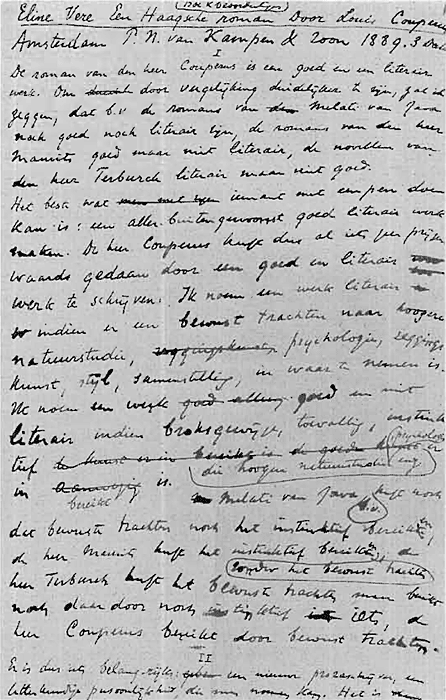 (Boekbeoordeeling)
Eline Vere Een Haagsche roman Door Louis Couperus
Amsterdam P. N. van Kampen & zoon 1889. 3 Dln.
I
De roman van den heer Couperus is een goed en een literair
werk. Om door vergelijking duidelijker te zijn, zal ik
zeggen, dat b.v. de romans van Melati van Java
noch goed noch literair zijn, de romans van den heer
Maurits goed maar niet literair, de novellen van
den heer Terburch literair maar niet goed.
Het beste wat iemant met een pen doen
kan is: een aller-buitengewoonst goed literair werk
maken. De heer Couperus heeft dus al iets zeer prijzens-
waards gedaan door een goed en literair
werk te schrijven. Ik noem een werk literair
indien er een bewust trachten naar hoogere
natuurstudie, psychologie, zeggings-
kunst, stijl, samenstelling, in waar te nemen is.
Ik noem een werk goed en niet
literair indien broksgewijze, toevallig, instink-
tief die hoogere natuurstudie enz.
in bereikt is. Melati van Java heeft noch
b.v.
dat bewuste trachten noch het instinktief bereikte,
de heer Maurits heeft het instinktief bereikte, de
zonder het bewust trachten
heer Terburch heeft het bewuste trachten maar bereikt
noch daardoor noch instinktief iets, de
heer Couperus bereikt door bewust trachten.
II
Er is dus iets belangrijks: een nieuwe prozaschrijver, een
letterkundige persoonlijkheid, die men noemen kan. Het is